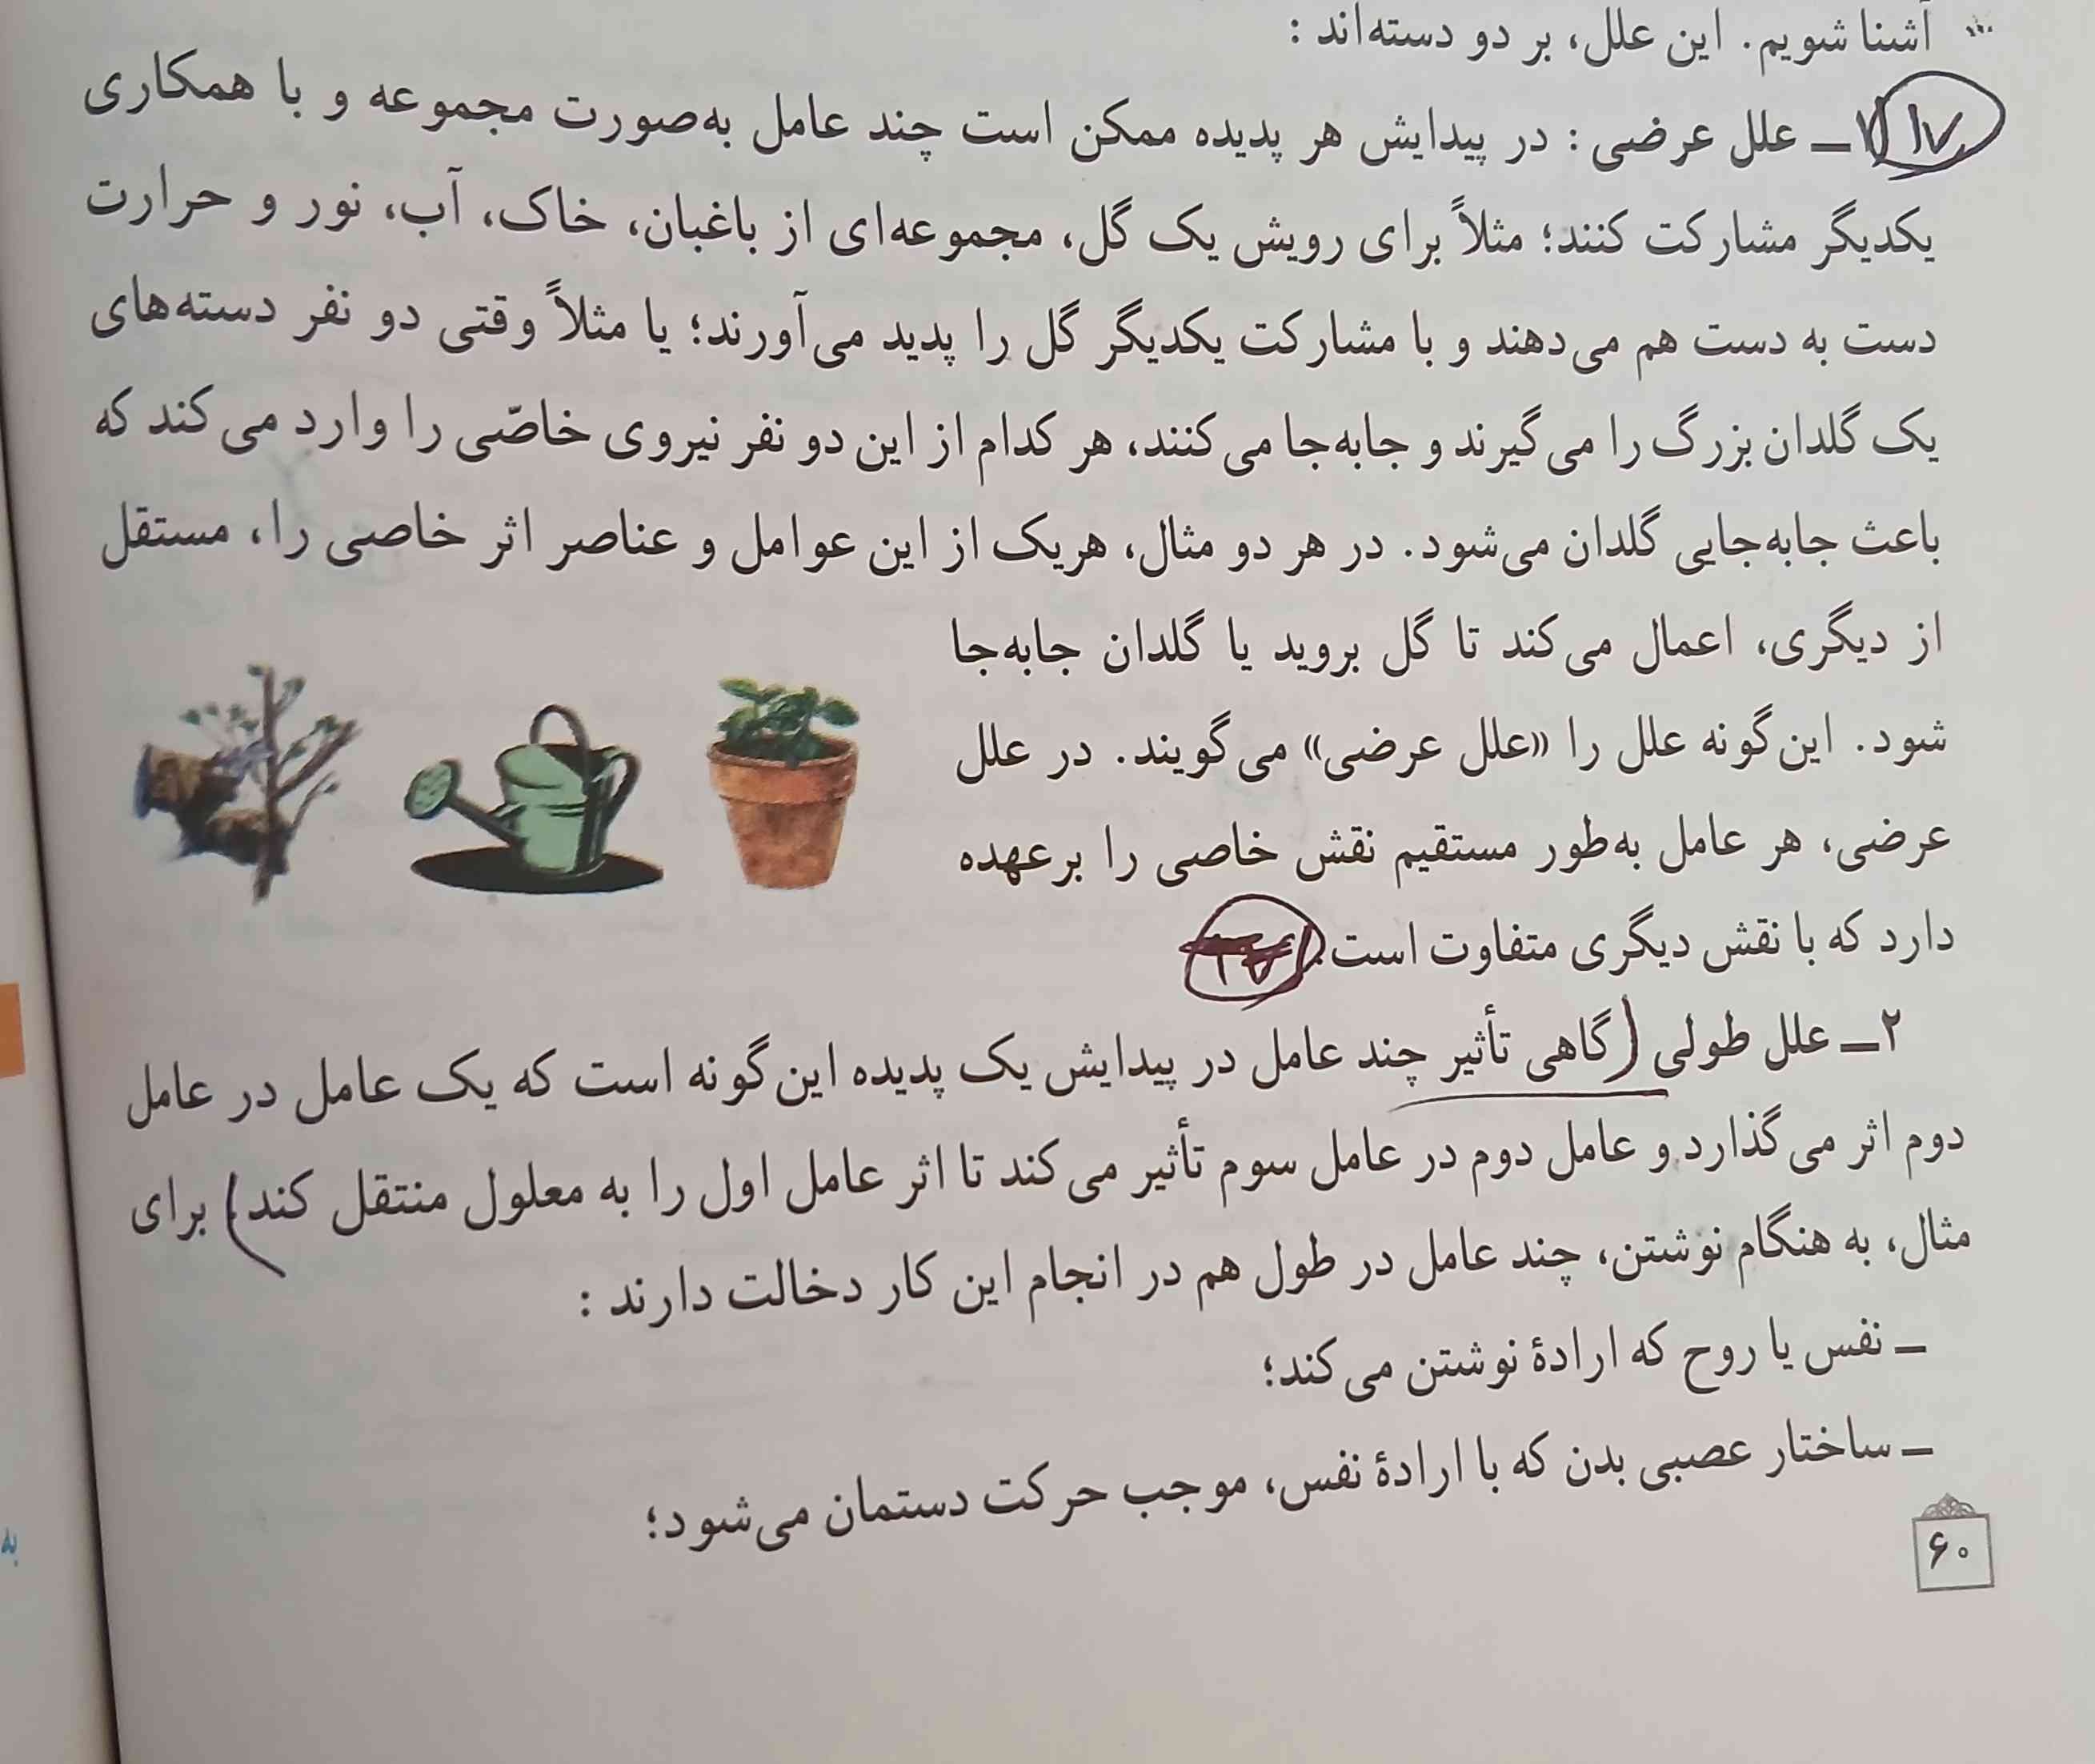 آشنا شویم. این علل، بر دو دسته‌اند :
۱۷
۱ــ علل عرضی : در پیدایش هر پدیده ممکن است چند عامل به‌صورت مجموعه و با همکاری
یکدیگر مشارکت کنند؛ مثلاً برای رویش یک گل، مجموعه‌ای از باغبان، خاک، آب، نور و حرارت
دست به دست هم می‌دهند و با مشارکت یکدیگر گل را پدید می‌آورند؛ یا مثلاً وقتی دو نفر دسته‌های
یک گلدان بزرگ را می‌گیرند و جابه‌جا می‌کنند، هر کدام از این دو نفر نیروی خاصّی را وارد می‌کند که
باعث جابه‌جایی گلدان می‌شود. در هر دو مثال، هریک از این عوامل و عناصر اثر خاصی را، مستقل
از دیگری، اعمال می‌کند تا گل بروید یا گلدان جابه‌جا
شود. این‌گونه علل را «علل عرضی» می‌گویند. در علل
عرضی، هر عامل به‌طور مستقیم نقش خاصی را برعهده
دارد که با نقش دیگری متفاوت است.
۲ــ علل طولی (گاهی تأثیر چند عامل در پیدایش یک پدیده این‌گونه است که یک عامل در عامل
دوم اثر می‌گذارد و عامل دوم در عامل سوم تأثیر می‌کند تا اثر عامل اول را به معلول منتقل کند) برای
مثال، به هنگام نوشتن، چند عامل در طول هم در انجام این کار دخالت دارند :
ــ نفس یا روح که ارادهٔ نوشتن می‌کند؛
ــ ساختار عصبی بدن که با ارادهٔ نفس، موجب حرکت دستمان می‌شود؛
۶۰
به